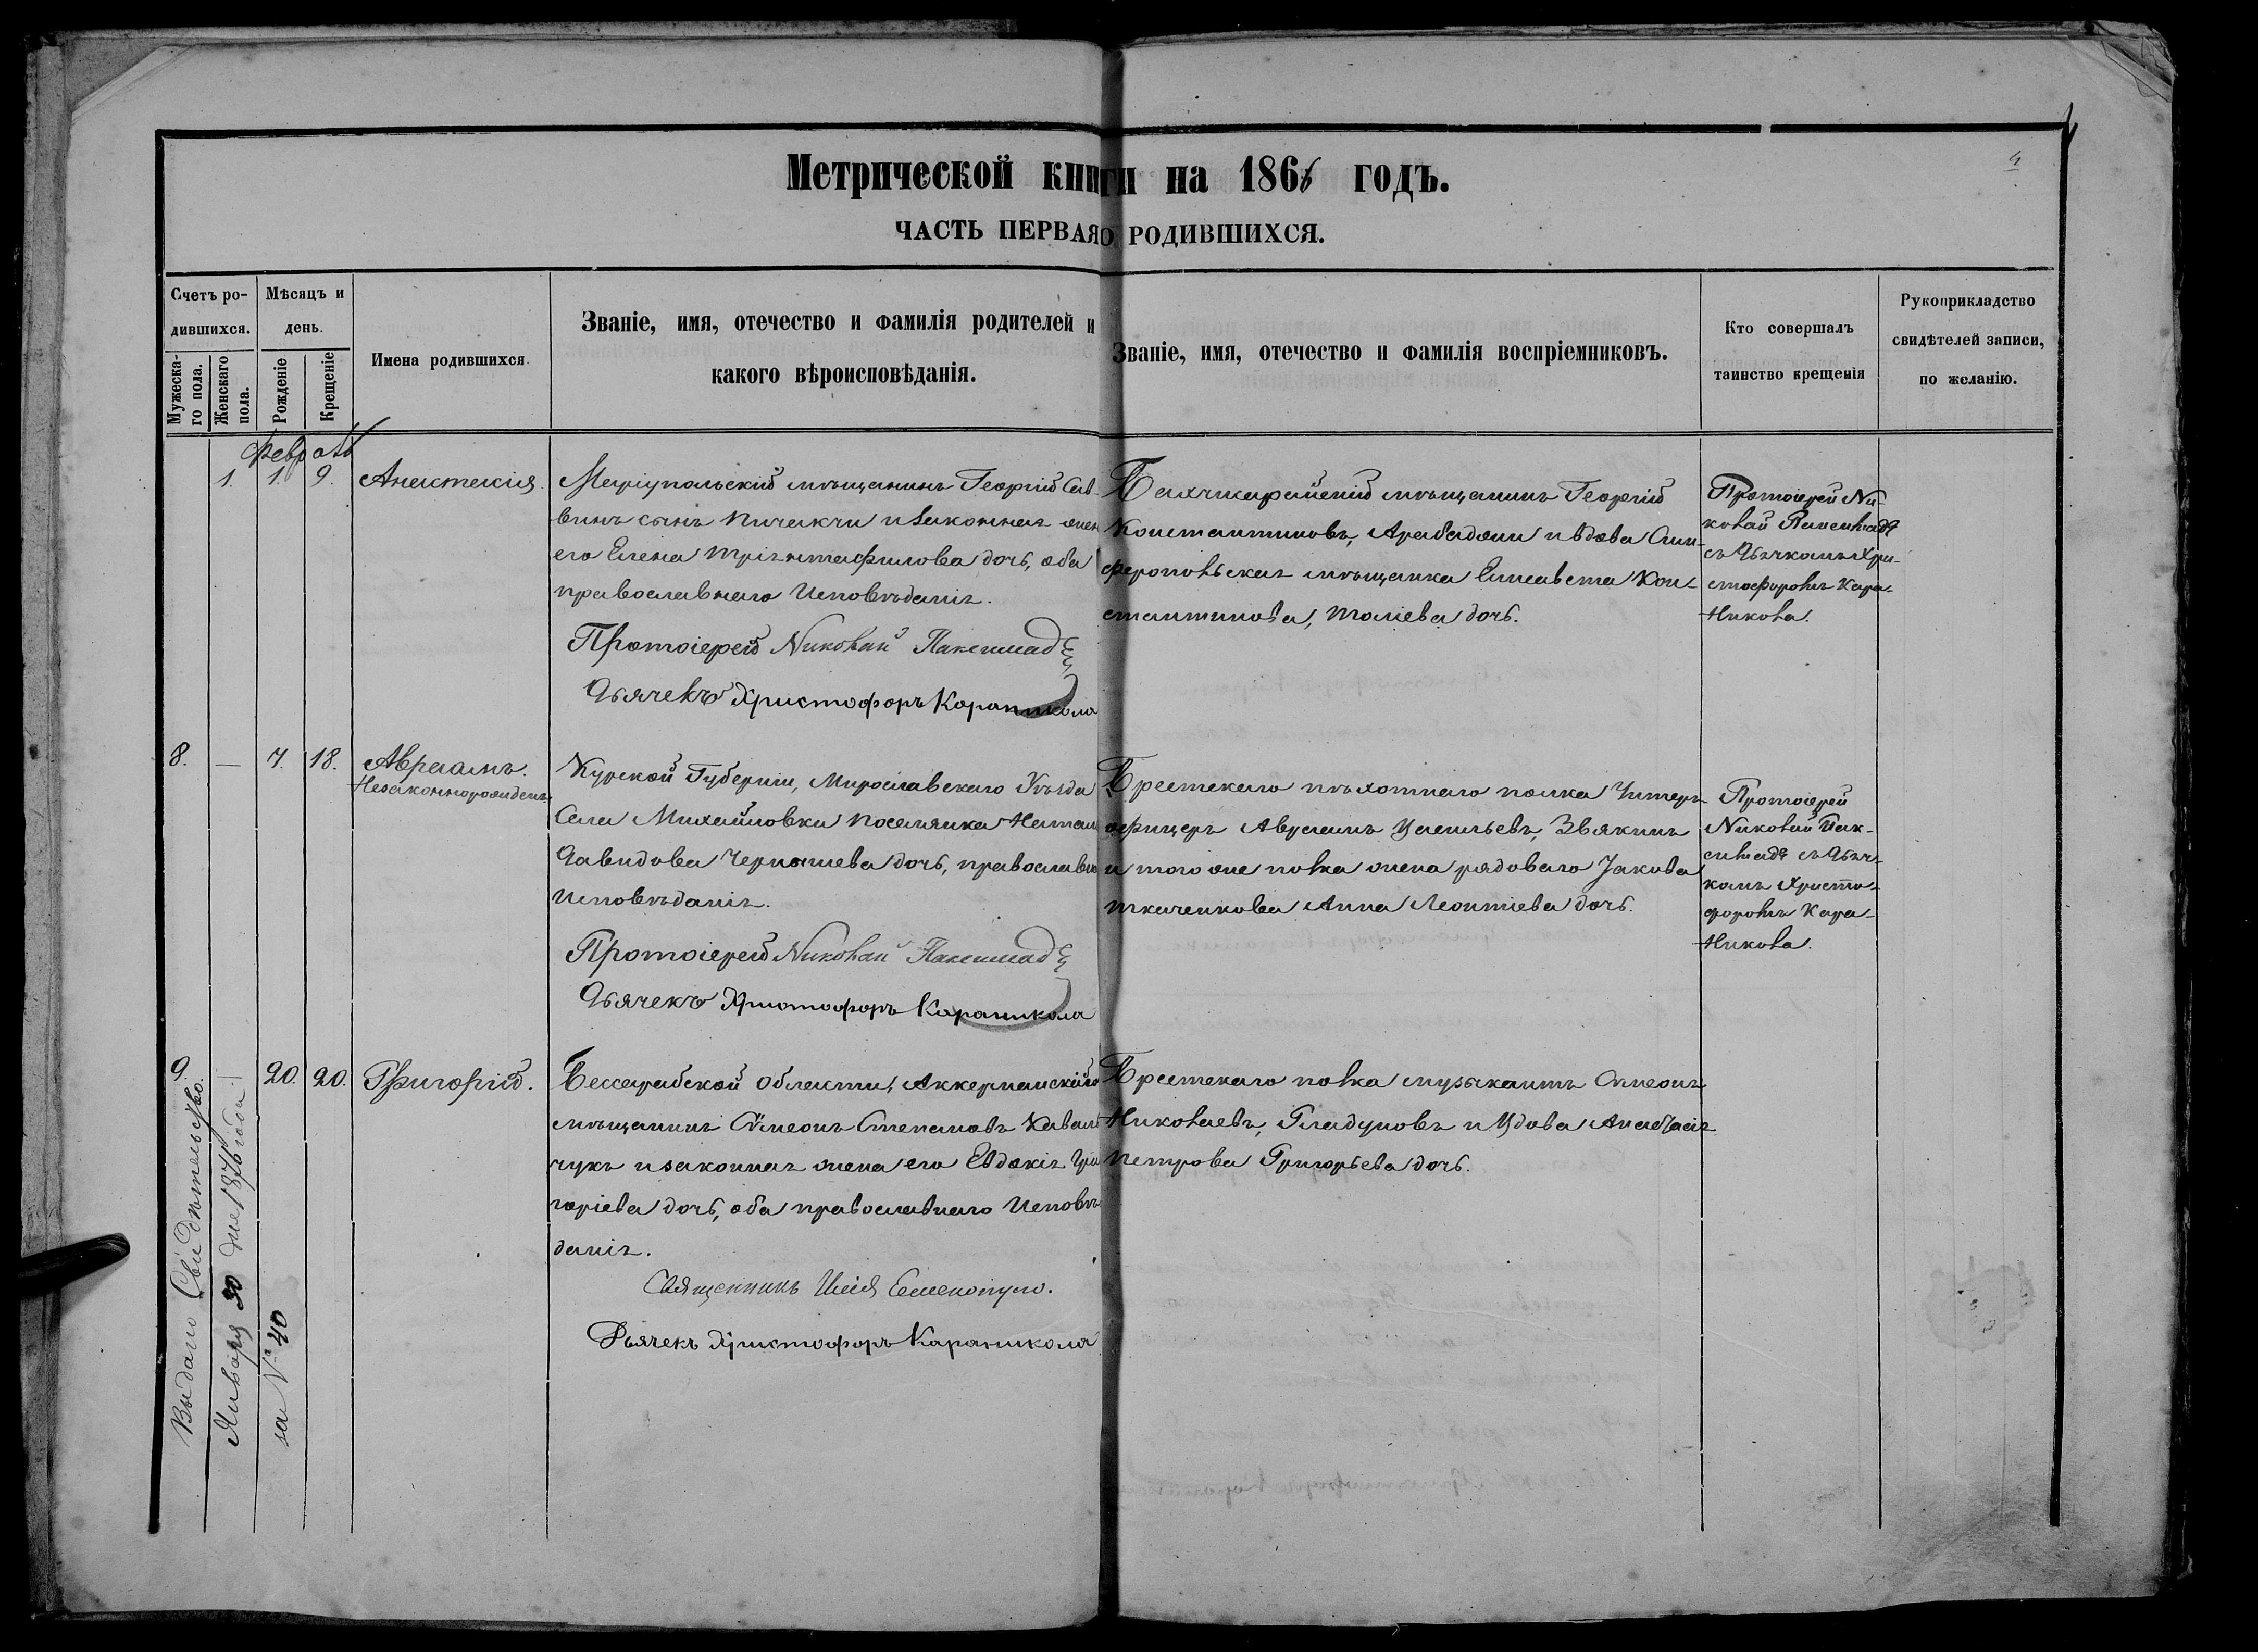 4
Метрической книги на 1866 годъ.
ЧАСТЬ ПЕРВАЯ О РОДИВШИХСЯ.
Счетъ ро-
дившихся.
Мужеска-
го пола.
Женскаго
пола.
Мѣсяцъ и
день.
Рожденіе
Крещеніе
Имена родившихся.
Званіе, имя, отечество и фамилія родителей и
какого вѣроисповѣданія.
Званіе, имя, отечество и фамилія воспріемниковъ.
Кто совершалъ
таинство крещенія
Рукоприкладство
свидѣтелей записи,
по желанію.
Февраль
1. 1. 9. Анастасія.
Маріупольскій мѣщанинъ Георгій Сав-
винъ сынъ Пичакчи и законная жен
его Елена Тріантафилова дочь, оба
православнаго Исповѣданія.
Протоіерей Николай Паксимад
Дьячекъ Христофоръ Караникола
Бахчисарайскій мѣщанинъ Георгій
Константиновъ, Арабаджи и вдова Сим-
феропольская мѣщанка Елисавета Кон-
стантинова, Таліева дочь.
Протоіерей Ни-
колай Паксимади
съ Дьячкомъ Хри-
стофоромъ Кара-
Никола.
8. — 7. 18. Авраамъ.
Незаконнорожденъ
Курской Губерніи, Мирославскаго Уѣзда
Села Михайловки поселянка Натал
Давидова Чернышева дочь, православн
Исповѣданія.
Протоіерей Николай Паксимад
Дьячекъ Христофоръ Караникола
Брестскаго пѣхотнаго полка Унтеръ-
офицеръ Авраамъ Васильевъ, Звякинъ
и того же полка жена рядоваго Іакова
Ткаченкова Анна Леонтіева дочь.
Протоіерей
Николай Пак-
симади съ Дьяч-
комъ Христо-
форомъ Кара-
Никола.
9. — 20. 20. Григорій.
Бессарабской Области, Аккерманскій
мѣщанинъ Сѵмеонъ Степановъ Каваль
чукъ и законная жена его Евдокія Гри
горіева дочь, оба православнаго Исповѣ
данія.
Священникъ Илія
Дьячекъ Христофоръ Караникола
Брестскаго полка музыкантъ Симеонъ
Николаевъ, Гладуновъ и Вдова Анастасія
Петрова Григорьева дочь.
Выдано Свидѣтельство.
Января 30 дне 1876 года
за № 40